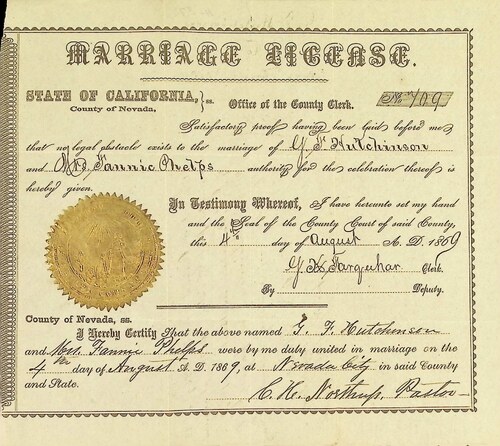 MARRIAGE LICENSE.
STATE OF CALIFORNIA, } ss. Office of the County Clerk. No. 709
County of Nevada,
Satisfactory proof having been laid before me
that no legal obstacle exists to the marriage of G. F. Hutchinson
and Mrs Fannie Phelps authority for the celebration thereof is
hereby given.
In Testimony Whereof, I have hereunto set my hand
and the Seal of the County Court of said County,
this 4th day of August A. D. 1869
G K Farquhar Clerk.
By Deputy.
County of Nevada, ss.
I Hereby Certify That the above named G. F. Hutchinson
and Mrs. Fannie Phelps were by me duly united in marriage on the
4th day of August A. D. 1869, at Nevada City in said County
and State.
C. H. Northup, Pastor